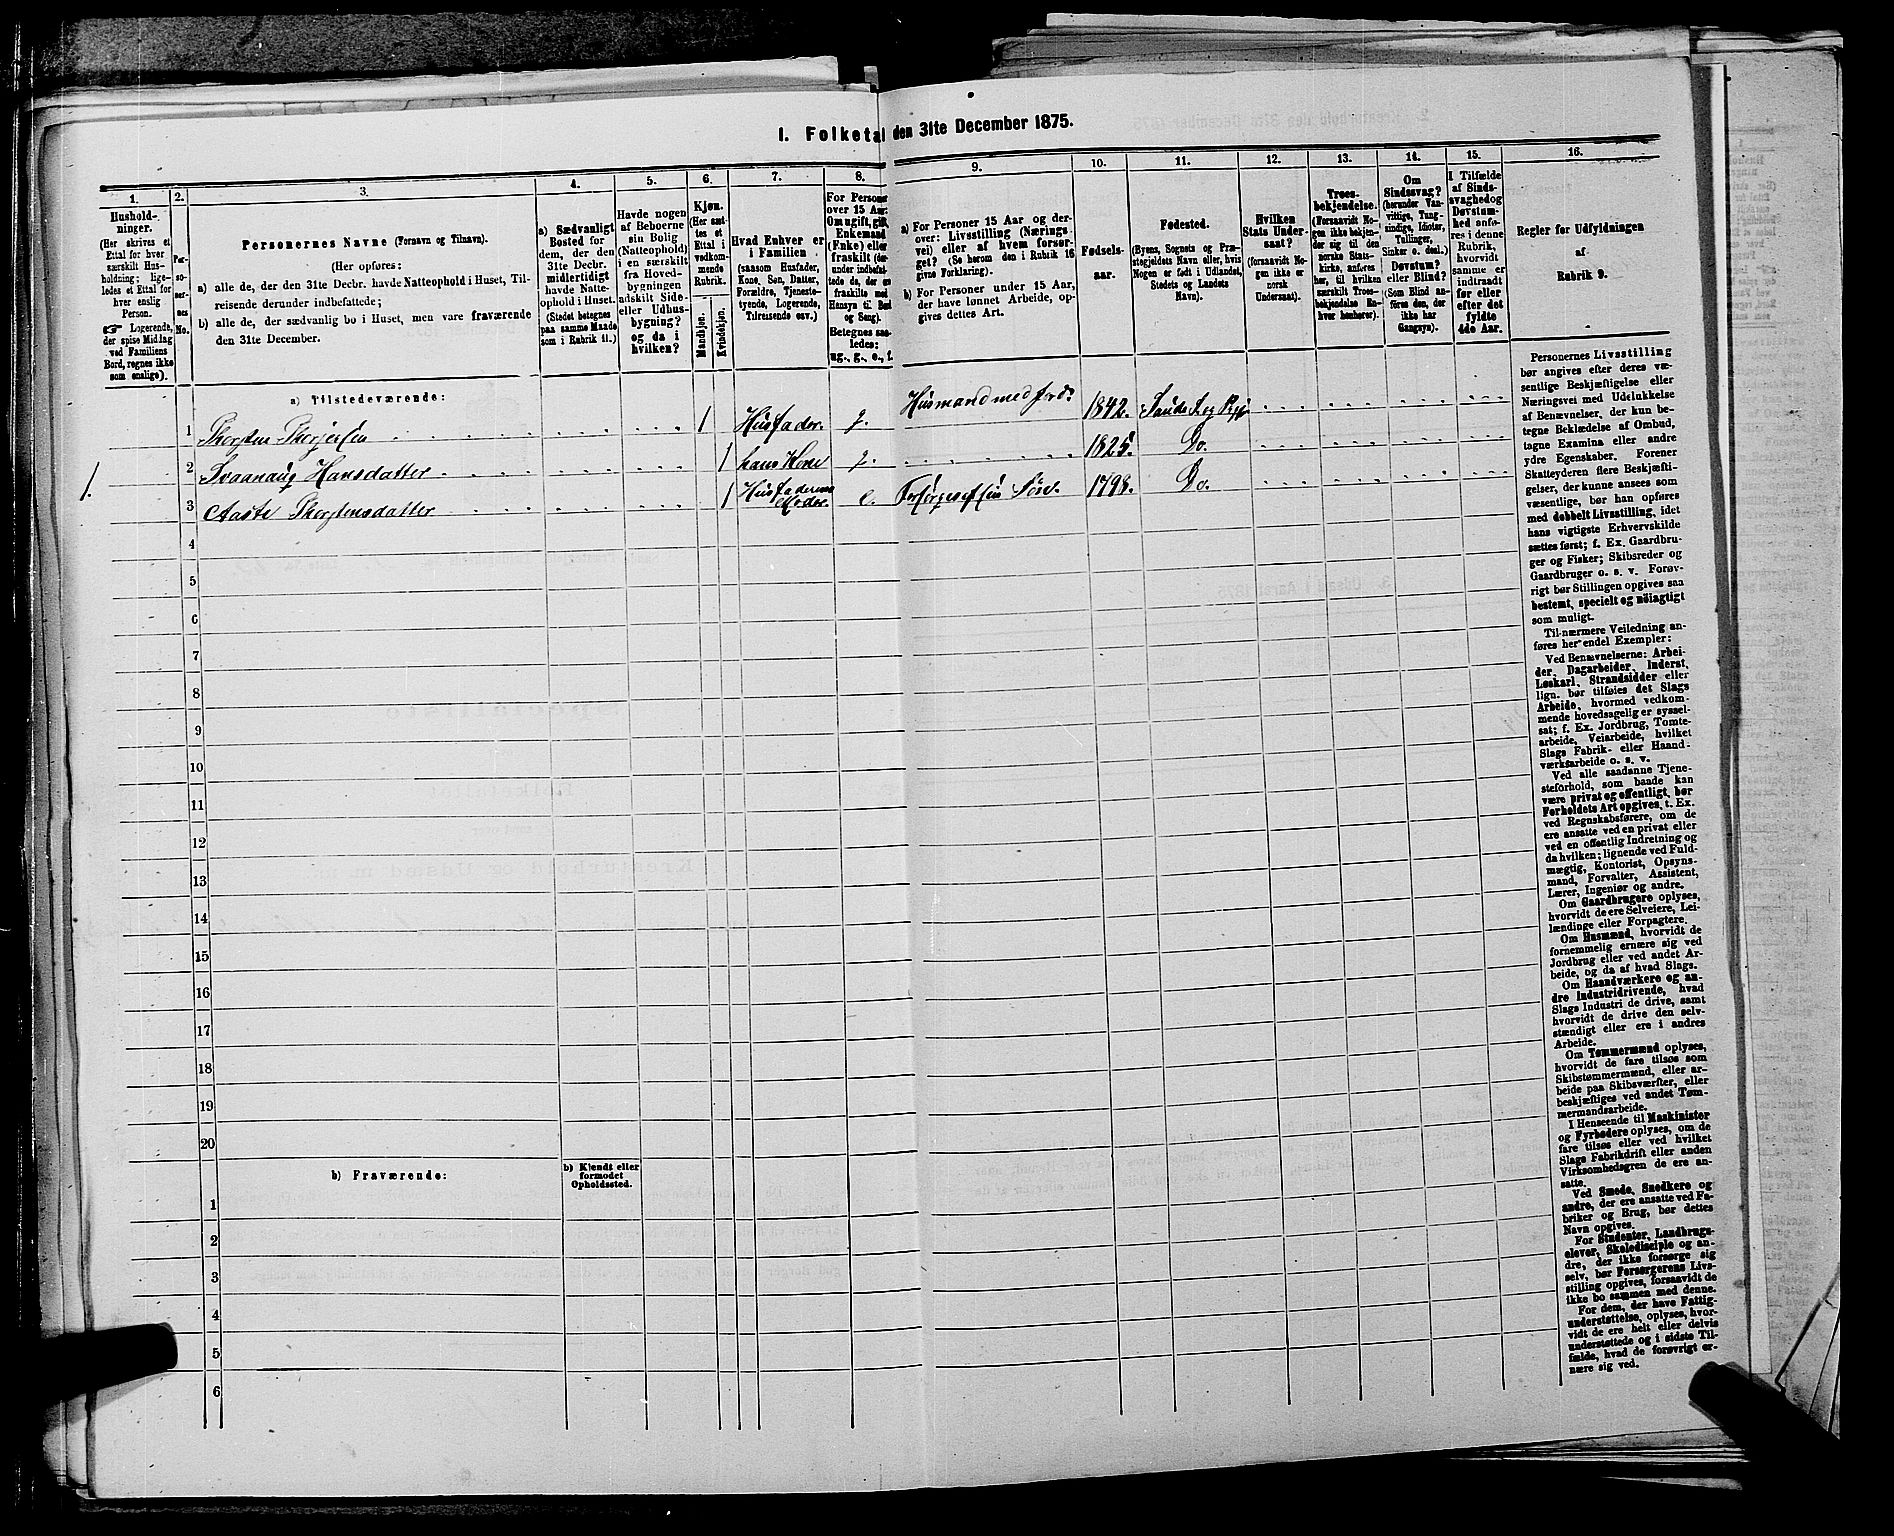 I. Folketal den 31te December 1875.
1.
Hushold-
ninger.
(Her skrives et
Ettal for hver
særskilt Hus-
holdning; lige-
ledes et Ettal for
hver enslig
Person.
☞ Logerende,
der spise Middag
ved Familiens
Bord, regnes ikke
som enslige).
2.
Per-
so-
ner-
nes
No.
3.
Personernes Navne (Fornavn og Tilnavn).
(Her opføres:
a) alle de, der den 31te Decbr. havde Natteophold i Huset, Til-
reisende derunder indbefattede;
b) alle de, der sædvanlig bo i Huset, men vare fraværende
den 31te December.
4.
a) Sædvanligt
Bosted for
dem, der den
31te Decbr.
midlertidigt
havde Natte-
ophold i Huset.
(Stedet betegnes
paa samme Maade
som i Rubrik 11.)
5.
Havde nogen
af Beboerne
sin Bolig
(Natteophold)
i en særskilt
fra Hoved-
bygningen
adskilt Side-
eller Udhus-
bygning?
og da i
hvilken?
6.
Kjøn.
(Her sæt-
tes et
Ettal i
vedkom-
mende
Rubrik.
Mandkjøn.
Kvindekjøn.
7.
Hvad Enhver er
i Familien
(saasom Husfader,
Kone, Søn, Datter,
Forældre, Tjeneste-
tyende, Logerende,
Tilreisende osv.)
8.
For Personer
over 15 Aar:
Om ugift, gift,
Enkemand
(Enke) eller
fraskilt (der-
under indbefat-
tede de, der ere
fraskilte med
Hensyn til Bord
og Seng).
Betegnes saa-
ledes:
ug., g., e., f.
9.
a) For Personer 15 Aar og der-
over: Livsstilling (Nærings-
vei) eller af hvem forsør-
get? (Se herom den i Rubrik 16
givne Forklaring).
b) For Personer under 15 Aar,
der have lønnet Arbeide, op-
gives dettes Art.
10.
Fødsels-
aar.
11.
Fødested.
(Byens, Sognets og Præ-
stegjeldets Navn eller, hvis
Nogen er født i Udlandet,
Stedets og Landets
Navn).
12.
Hvilken
Stats Under-
saat?
(forsaavidt No-
gen ikke er
norsk
Undersaat).
13.
Troes-
bekjendelse.
(Forsaavidt No-
gen ikke bekjen-
der sig til den
norske Stats-
kirke, anføres
her, til hvilken
særskilt Troes-
bekjendelse En-
hver henhører).
14.
Om
Sindssvag?
(herunder Van-
vittige, Tung-
sindige, Idioter,
Tullinger,
Sinker o. desl.).
Døvstum?
eller Blind?
(Som Blind an-
føres den, der
ikke har
Gangsyn).
15.
I Tilfælde
af Sinds-
svaghed og
Døvstum-
hed anfø-
res i denne
Rubrik,
hvorvidt
samme er
indtraadt
før eller
efter det
fyldte
4de Aar.
16.
Regler for Udfyldningen
af
Rubrik 9.
a) Tilstedeværende:
1 Thorsten Thorjersen 1 Husfader. g. Husmand med Jord. 1842.
1. 2 Svaanaug Hansdatter 1 hans Kone g. 1825. Do.
3 Aaste Thorstensdatter 1 Husfaderens Moder. e. Forsørges af sin Søn. 1798. Do.
4
5
6
7
8
9
10
11
12
13
14
15
16
17
18
19
20
b) Fraværende:
b) Kjendt eller
formodet
Opholdssted.
1
2
3
4
5
6
Personernes Livsstilling
bør angives efter deres væ-
sentlige Beskjæftigelse eller
Næringsvei med Udelukkelse
af Benævnelser, der kun be-
tegne Beklædelse af Ombud,
tagne Examina eller andre
ydre Egenskaber. Forener
Skatteyderen flere Beskjæfti-
gelser, der kunne ansees som
væsentlige, bør han opføres
med dobbelt Livsstilling, idet
hans vigtigste Erhvervskilde
sættes først; f. Ex. Gaardbru-
ger og Fisker; Skibsreder og
Gaardbruger o. s. v. Forøv-
rigt bør Stillingen opgives saa
bestemt, specielt og nøiagtigt
som muligt.
Til nærmere Veiledning an-
føres her endel Exempler:
Ved Benævnelserne: Arbei-
der, Dagarbeider, Inderst,
Løskarl, Strandsidder eller
lign. bør tilføies det Slags
Arbeide, hvormed vedkom-
mende hovedsagelig er syssel-
sat; f. Ex. Jordbrug, Tomte-
arbeide, Veiarbeide, hvilket
Slags Fabrik- eller Haand-
værksarbeide o. s. v.
Ved alle saadanne Tjene-
steforhold, som baade kan
være privat og offentligt, bør
Forholdets Art opgives, t. Ex.
ved Regnskabsførere, om de
ere ansatte ved en privat eller
ved en offentlig Indretning og
da hvilken; lignende ved Fuld-
mægtig, Kontorist, Opsyns-
mand, Forvalter, Assistent,
Lærer, Ingeniør og andre.
Om Gaardbrugere oplyses,
hvorvidt de ere Selveiere, Lei-
lændinge eller Forpagtere.
Om Husmænd, hvorvidt de
fornemmelig ernære sig ved
Jordbrug eller ved andet Ar-
beide, og da af hvad Slags.
Om Haandværkere og an-
dre Industridrivende, hvad
Slags Industri de drive, samt
hvorvidt de drive den selv-
stændigt eller ere i andres
Arbeide.
Om Tømmermænd oplyses,
hvorvidt de fare tilsøs som
Skibstømmermænd, eller ar-
beide paa Skibsværfter, eller
beskjæftiges ved andet Tøm-
mermandsarbeide.
I Henseende til Maskinister
og Fyrbødere oplyses, om de
fare tilsøs eller ved hvilket
Slags Fabrikdrift eller anden
Virksomhedsgren de ere an-
satte.
Ved Smede, Snedkere og
andre, der ere ansatte ved Fa-
briker og Brug, bør dettes
Navn opgives.
For Studenter, Landbrugs-
elever, Skoledisciple og an-
dre, der ikke forsørge sig
selv, bør Forsørgerens Livs-
stilling opgives, forsaavidt de
ikke bo sammen med denne.
For dem, der have Fattig-
understøttelse, oplyses, hvor-
vidt de ere helt eller delvis
understøttede og i sidste Til-
fælde, hvad de forøvrigt er-
nære sig ved.